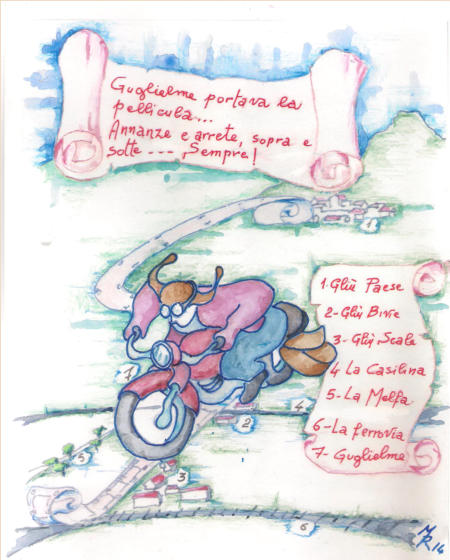 Guglielme portava la
pellicula...
Annanze e arrete, sopra e
sotte ---, Sempre!
1
1. Gliù Paese
2- Gliù Bivie
3- Gliù Scale
4 La Casilina
5- La Melfa
6- La ferrovia
7- Guglielme
7
4
2
5
3
6
MR 14